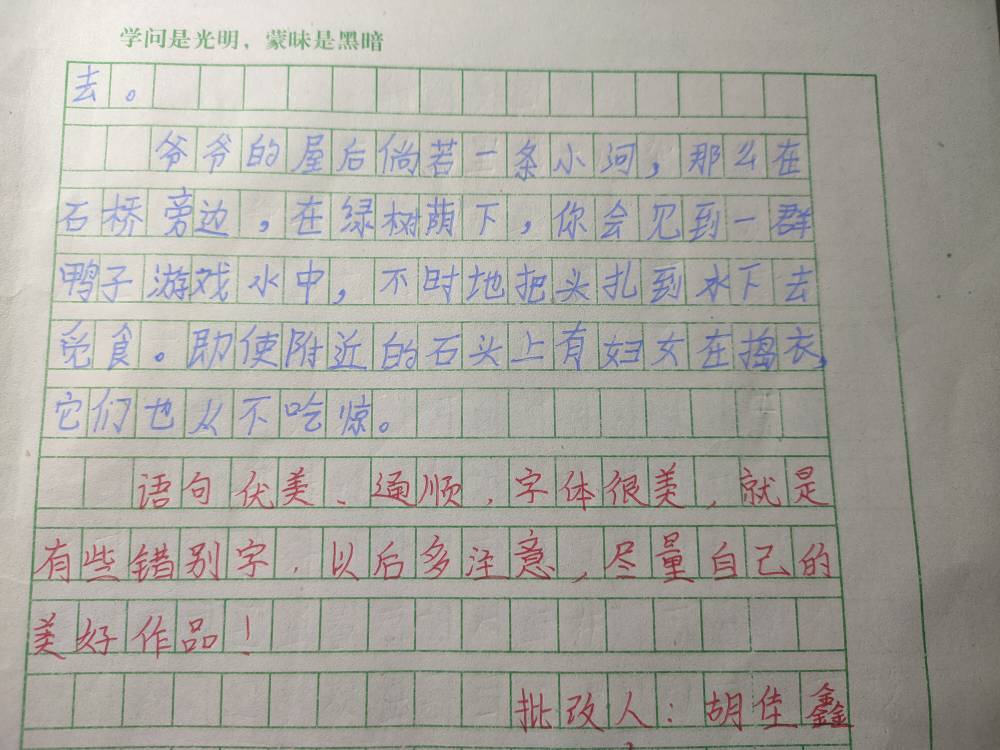 学问是光明，蒙昧是黑暗
去。
爷爷的屋后倘若一条小河，那么在
石桥旁边，在绿树荫下，你会见到一群
鸭子游戏水中，不时地把头扎到水下去
觅食。即使附近的石头上有妇女在捣衣，
它们也从不吃惊。
语句优美、通顺，字体很美，就是
有些错别字，以后多注意，尽量自己的
美好作品！
批改人：胡佳鑫